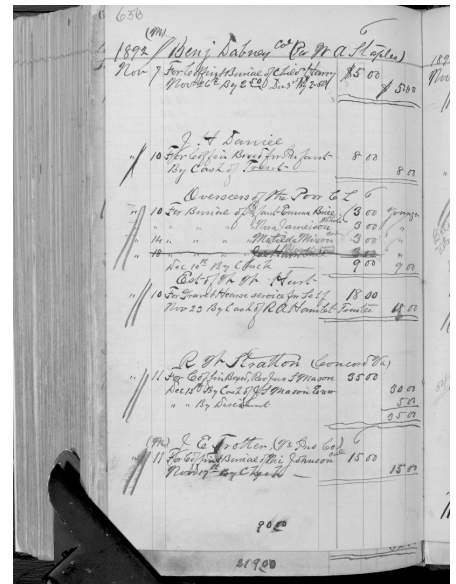 656
1892 Benj Dabney Col (Pr W A Staples) 6
Nov 7 For Coffin & Burial of Child Harry $5 00
Nov 26th By 2.50 Dec 3rd By 2.50 $ 5.00
J. H. Daniel
" 10 For Coffin Boxed for Infant 8 00
By Cash of 8 00
Overseers of the Poor C. L. 6
" 10 For Burial of Infant Emma Brice 3 00
" " " " " Jameson 3 00 "
" 14 " " " Matilda Mixon 3 00 "
" 18 " " " 3 00
Dec 10th By Check 9 00 9 00
Est of Hurt
" 10 For Grave & Hearse service for Self 18 00
Nov 23 By Cash of R. A. Hamlet Trustee 18 00
R. W. Stratton (Concord Va)
" 11 For Coffin Boxed, Rufus T Mason 35 00
Dec 15th By Cash of Mason 30 00
" " By Discount 5 00
35 00
J. E. Trotter
" 11 For Coffin & Burial of Johnson 15 00
Nov 17th By Check 15 00
90 00
219 00